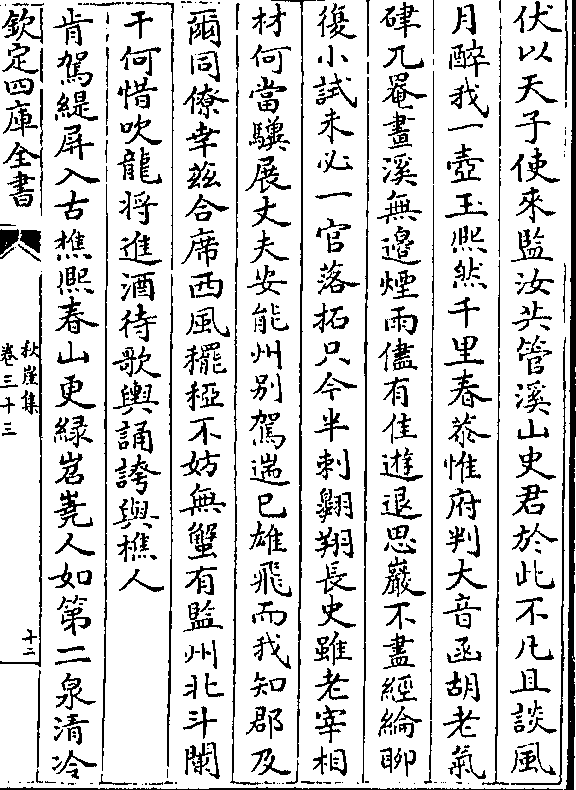 伏以天子使來監汝共管溪山史君於此不凡且談風
月醉我一壺玉熈然千里春恭惟府判大音函胡老氣
硉兀罨畫溪無邊煙雨儘有佳遊退思巖不盡經綸聊
復小試未必一官落拓只今半刺翺翔長史雖老宰相
材何當驥展丈夫安能州别駕遄已雄飛而我知郡及
爾同僚幸兹合席西風䆉稏不妨無蟹有監州北斗闌
干何惜吹龍將進酒待歌輿誦誇與樵人
肯駕緹屏入古樵熈春山更緑岧嶤人如第二泉清冷
欽定四庫全書
秋崖集
卷三十三
十二